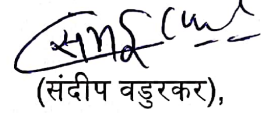 (संदीप वडुरकर),